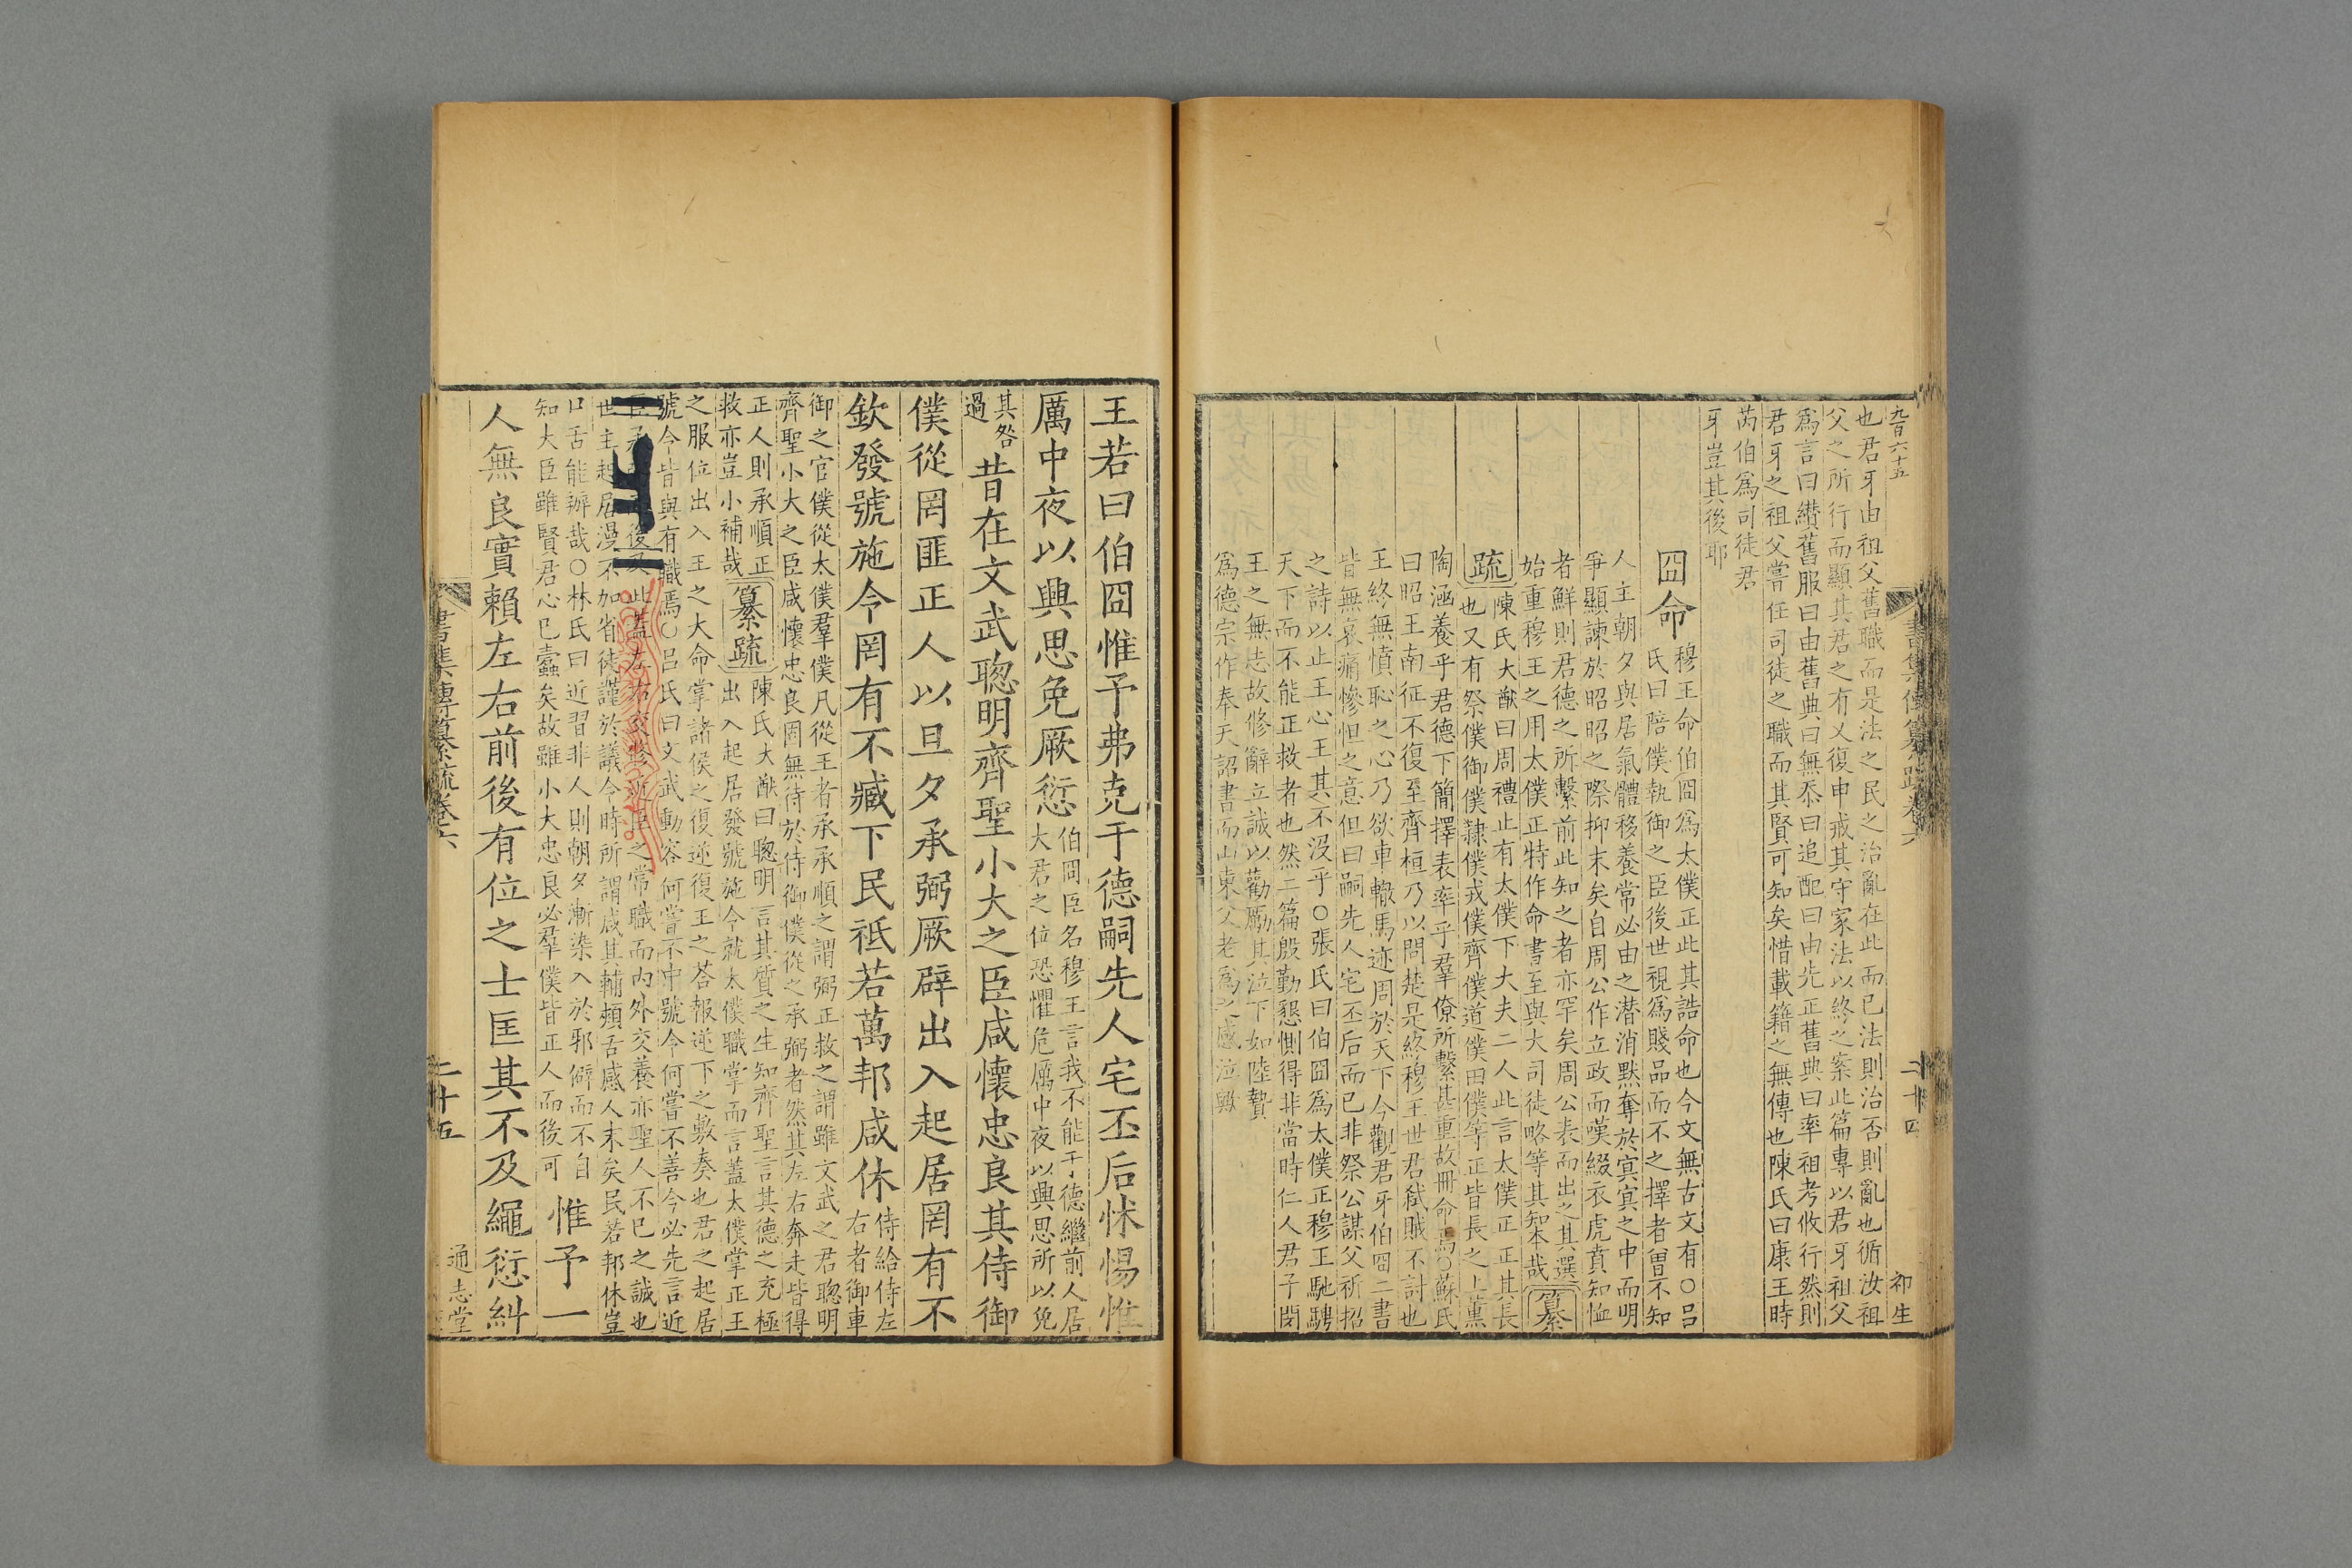 九百六十五
也君牙由祖父舊職而是法之民之治亂在此而已法則治否則亂也循汝祖
父之所行而顯其君之有乂復申戒其守家法以終之案此篇專以君牙祖父
爲言曰纘舊服曰由舊典曰無忝曰追配曰由先正舊典曰率祖考攸行然則
君牙之祖父嘗任司徒之職而其賢可知矣惜載籍之無傳也陳氏曰康王時
芮伯爲司徒君
牙豈其後耶
囧命
穆王命伯囧爲太僕正此其誥命也今文無古文有○呂
氏曰陪僕執御之臣後世視爲賤品而不之擇者曾不知
人主朝夕與居氣體移養常必由之潜消默奪於冥冥之中而明
爭顯諫於昭昭之際抑末矣自周公作立政而嘆綴衣虎賁知恤
者鮮則君德之所繫前此知之者亦罕矣周公表而出之其選
始重穆王之用太僕正特作命書至與大司徒略等其知本哉
纂
疏
陳氏大猷曰周禮止有太僕下大夫二人此言太僕正正其長
也又有祭僕御僕隷僕戎僕齊僕道僕田僕等正皆長之上薫
陶涵養乎君德下簡擇表率乎羣僚所繫甚重故冊命焉○蘇氏
曰昭王南征不復至齊桓乃以問楚是終穆王世君弑賊不討也
王終無憤恥之心乃欲車轍馬迹周於天下今觀君牙伯囧二書
皆無哀痛慘怛之意但曰嗣先人宅丕后而已非祭公謀父祈招
之詩以止王心王其不没乎○張氏曰伯囧爲太僕正穆王馳騁
天下而不能正救者也然二篇殷勤懇惻得非當時仁人君子閔
王之無志故修辭立誠以勸勵其泣下如陸贄
爲德宗作奉天詔書而山東父老爲之感泣歟
書集傳纂疏卷六
二十四
初生
王若曰伯囧惟予弗克于德嗣先人宅丕后怵惕惟
厲中夜以興思免厥愆
伯囧臣名穆王言我不能于德繼前人居
大君之位恐懼危厲中夜以興思所以免
其咎
過
昔在文武聰明齊聖小大之臣咸懷忠良其侍御
僕從罔匪正人以旦夕承弼厥辟出入起居罔有不
欽發號施令罔有不臧下民祗若萬邦咸休
侍給侍左
右者御車
御之官僕從太僕羣僕凡從王者承承順之謂弼正救之謂雖文武之君聰明
齊聖小大之臣咸懷忠良固無待於侍御僕從之承弼者然其左右奔走皆得
正人則承順正
救亦豈小補哉
纂疏
陳氏大猷曰聰明言其質之生知齊聖言其德之充極
出入起居發號施令就太僕職掌而言蓋太僕掌正王
之服位出入王之大命掌諸侯之復逆復王之荅報逆下之敷奏也君之起居
號令皆與有職焉○呂氏曰文武動容何嘗不中號令何嘗不善今必先言近
臣承後此蓋左右交修近臣之常職而内外交養亦聖人不已之誠也
世主起居漫不加省徒謹於議令時所謂咸其輔頰舌感人末矣民若邦休豈
口舌能辦哉○林氏曰近習非人則朝夕漸染入於邪僻而不自
知大臣雖賢君心已蠹矣故雖小大忠良必羣僕皆正人而後可
惟予一
人無良實賴左右前後有位之士匡其不及繩愆糾
書集傳纂疏卷六
二十五
通志堂